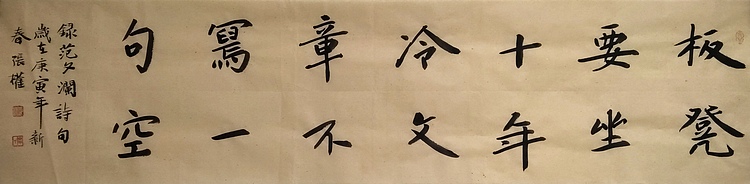 板凳
要坐
十年
冷文
章不
寫一
句空
錄范文瀾詩句
歲在庚寅年新
春張權